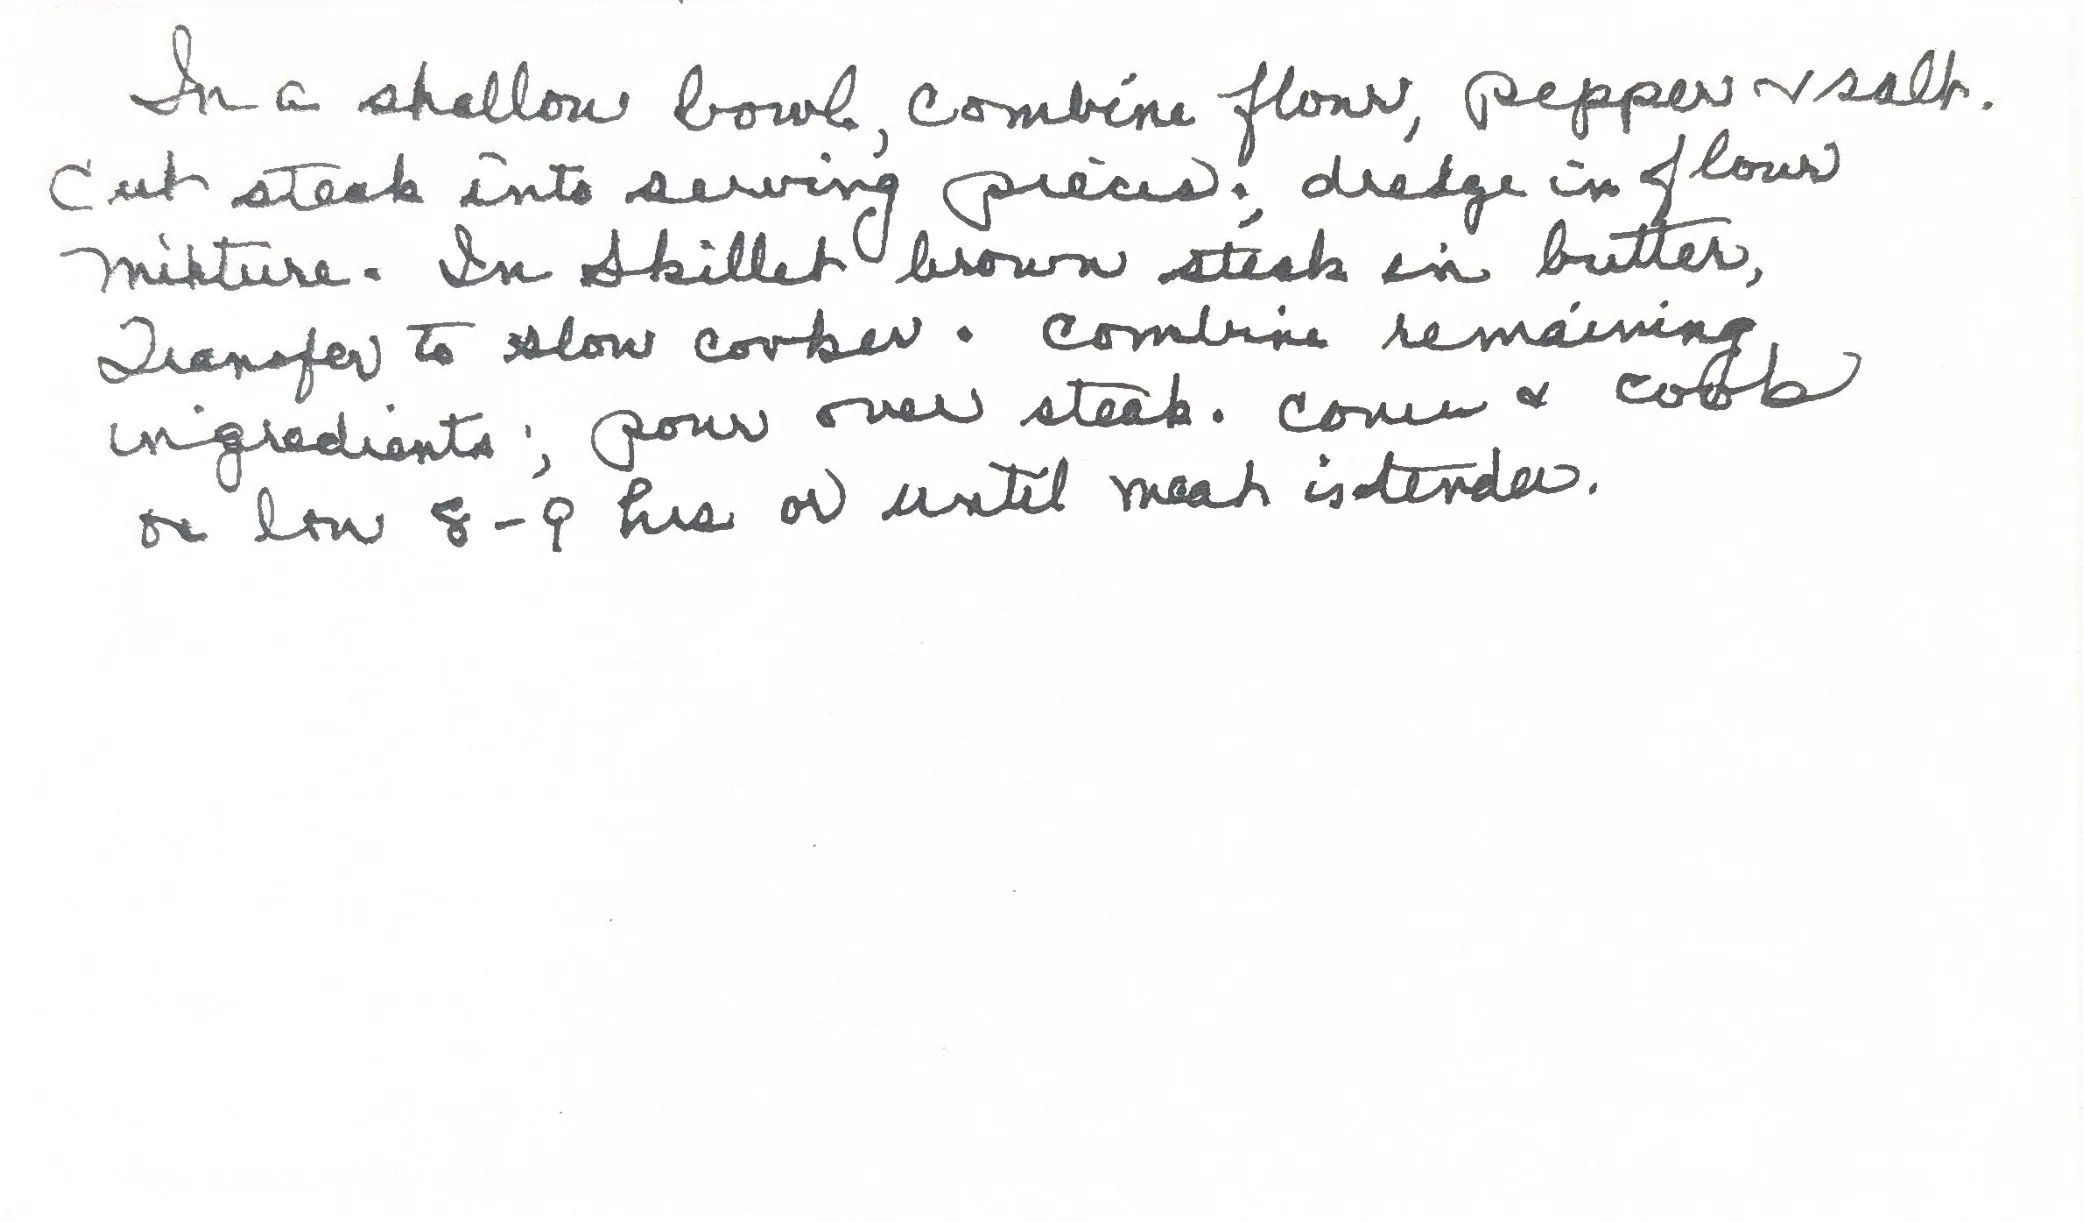 In a shallow bowl, combine flour, pepper & salt.
Cut steak into serving pieces; dredge in flour
mixture. In Skillet brown steak in butter,
Transfer to slow cooker. Combine remaining
ingredients; pour over steak. Cover & cook
on low 8-9 hrs or until meat is tender.